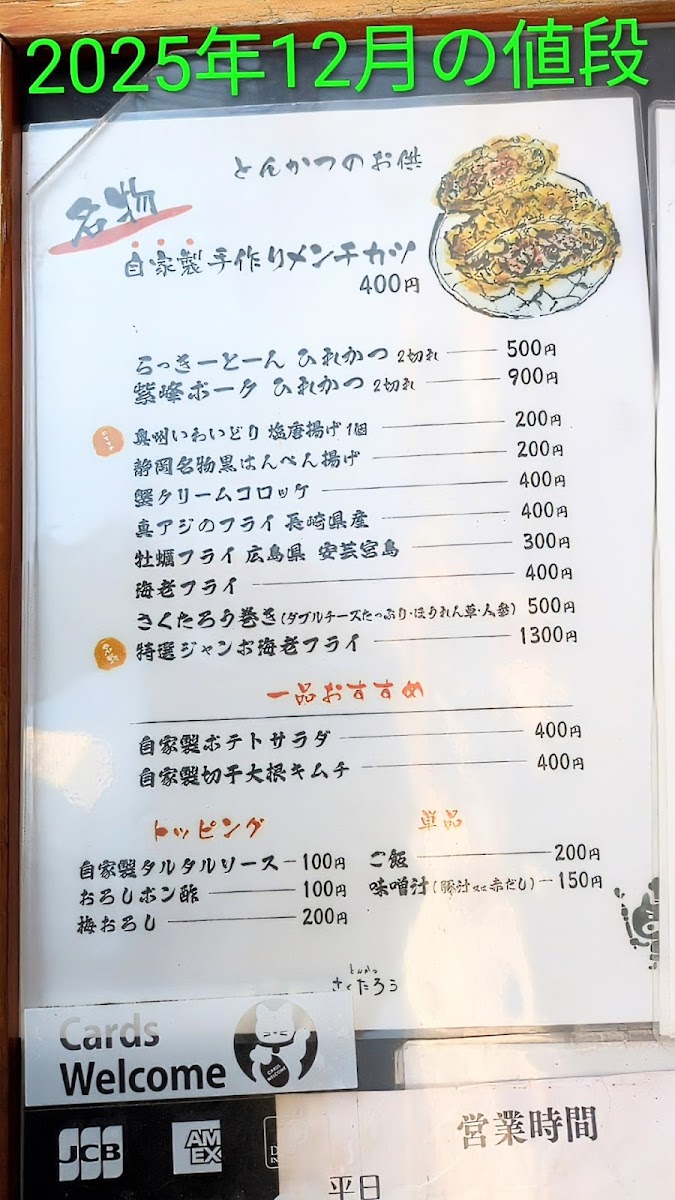 2025年12月の値段
とんかつのお供
名物
自家製手作りメンチカツ
400円
らっきーとーん ひれかつ 2切れ 500円
紫峰ポータ ひれかつ 2切れ 900円
奥州いわいどり 塩唐揚げ 1個 200円
静岡名物黒はんぺん揚げ 200円
蟹クリームコロッケ 400円
真アジのフライ 長崎県産 400円
牡蠣フライ 広島県 安芸宮島 300円
海老フライ 400円
さくたろう巻き(ダブルチーズたっぷり・ほうれん草・人参) 500円
特選ジャンボ海老フライ 1300円
一品おすすめ
自家製ポテトサラダ 400円
自家製切干大根キムチ 400円
トッピング
自家製タルタルソース 100円
おろしポン酢 100円
梅おろし 200円
単品
ご飯 200円
味噌汁(豚汁または赤だし) 150円
とんかつ
さくたろう
Cards
Welcome
CARDS
WELCOME
JCB
AM
EX
営業時間
平日